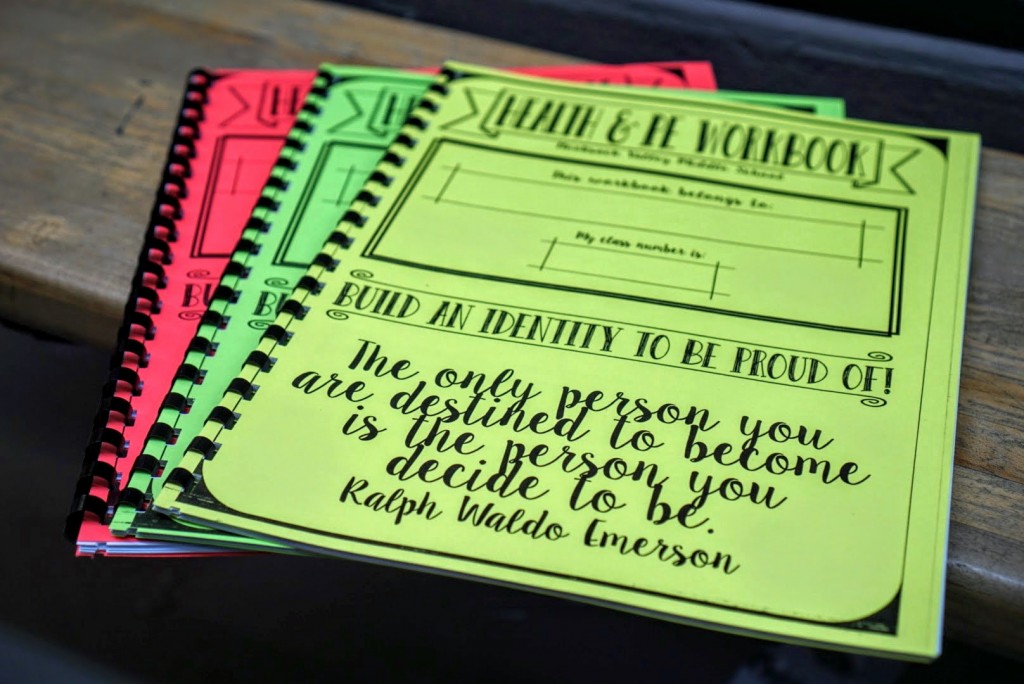 HEALTH & PE WORKBOOK
Valley Middle School
This workbook belongs to:
My class number is:
BUILD AN IDENTITY TO BE PROUD OF!
The only person you
are destined to become
is the person you
decide to be.
Ralph Waldo Emerson
H
BU
H
B